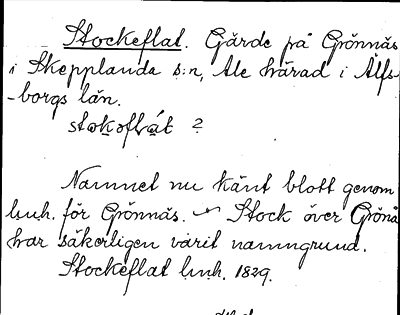 Stockeflat. Gärde på Grönnäs
i Skepplanda s:n, Ale härad i Älfs-
-borgs län.
stokoflát ?
Namnet nu känt blott genom
l.u.h. för Grönnäs. Stock över Grönå
har säkerligen varit namngrund.
Stockeflat l.u.h. 1829.